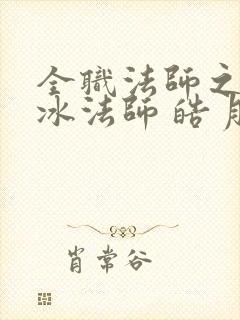 全職法師之
冰法師 皓月
肖常谷